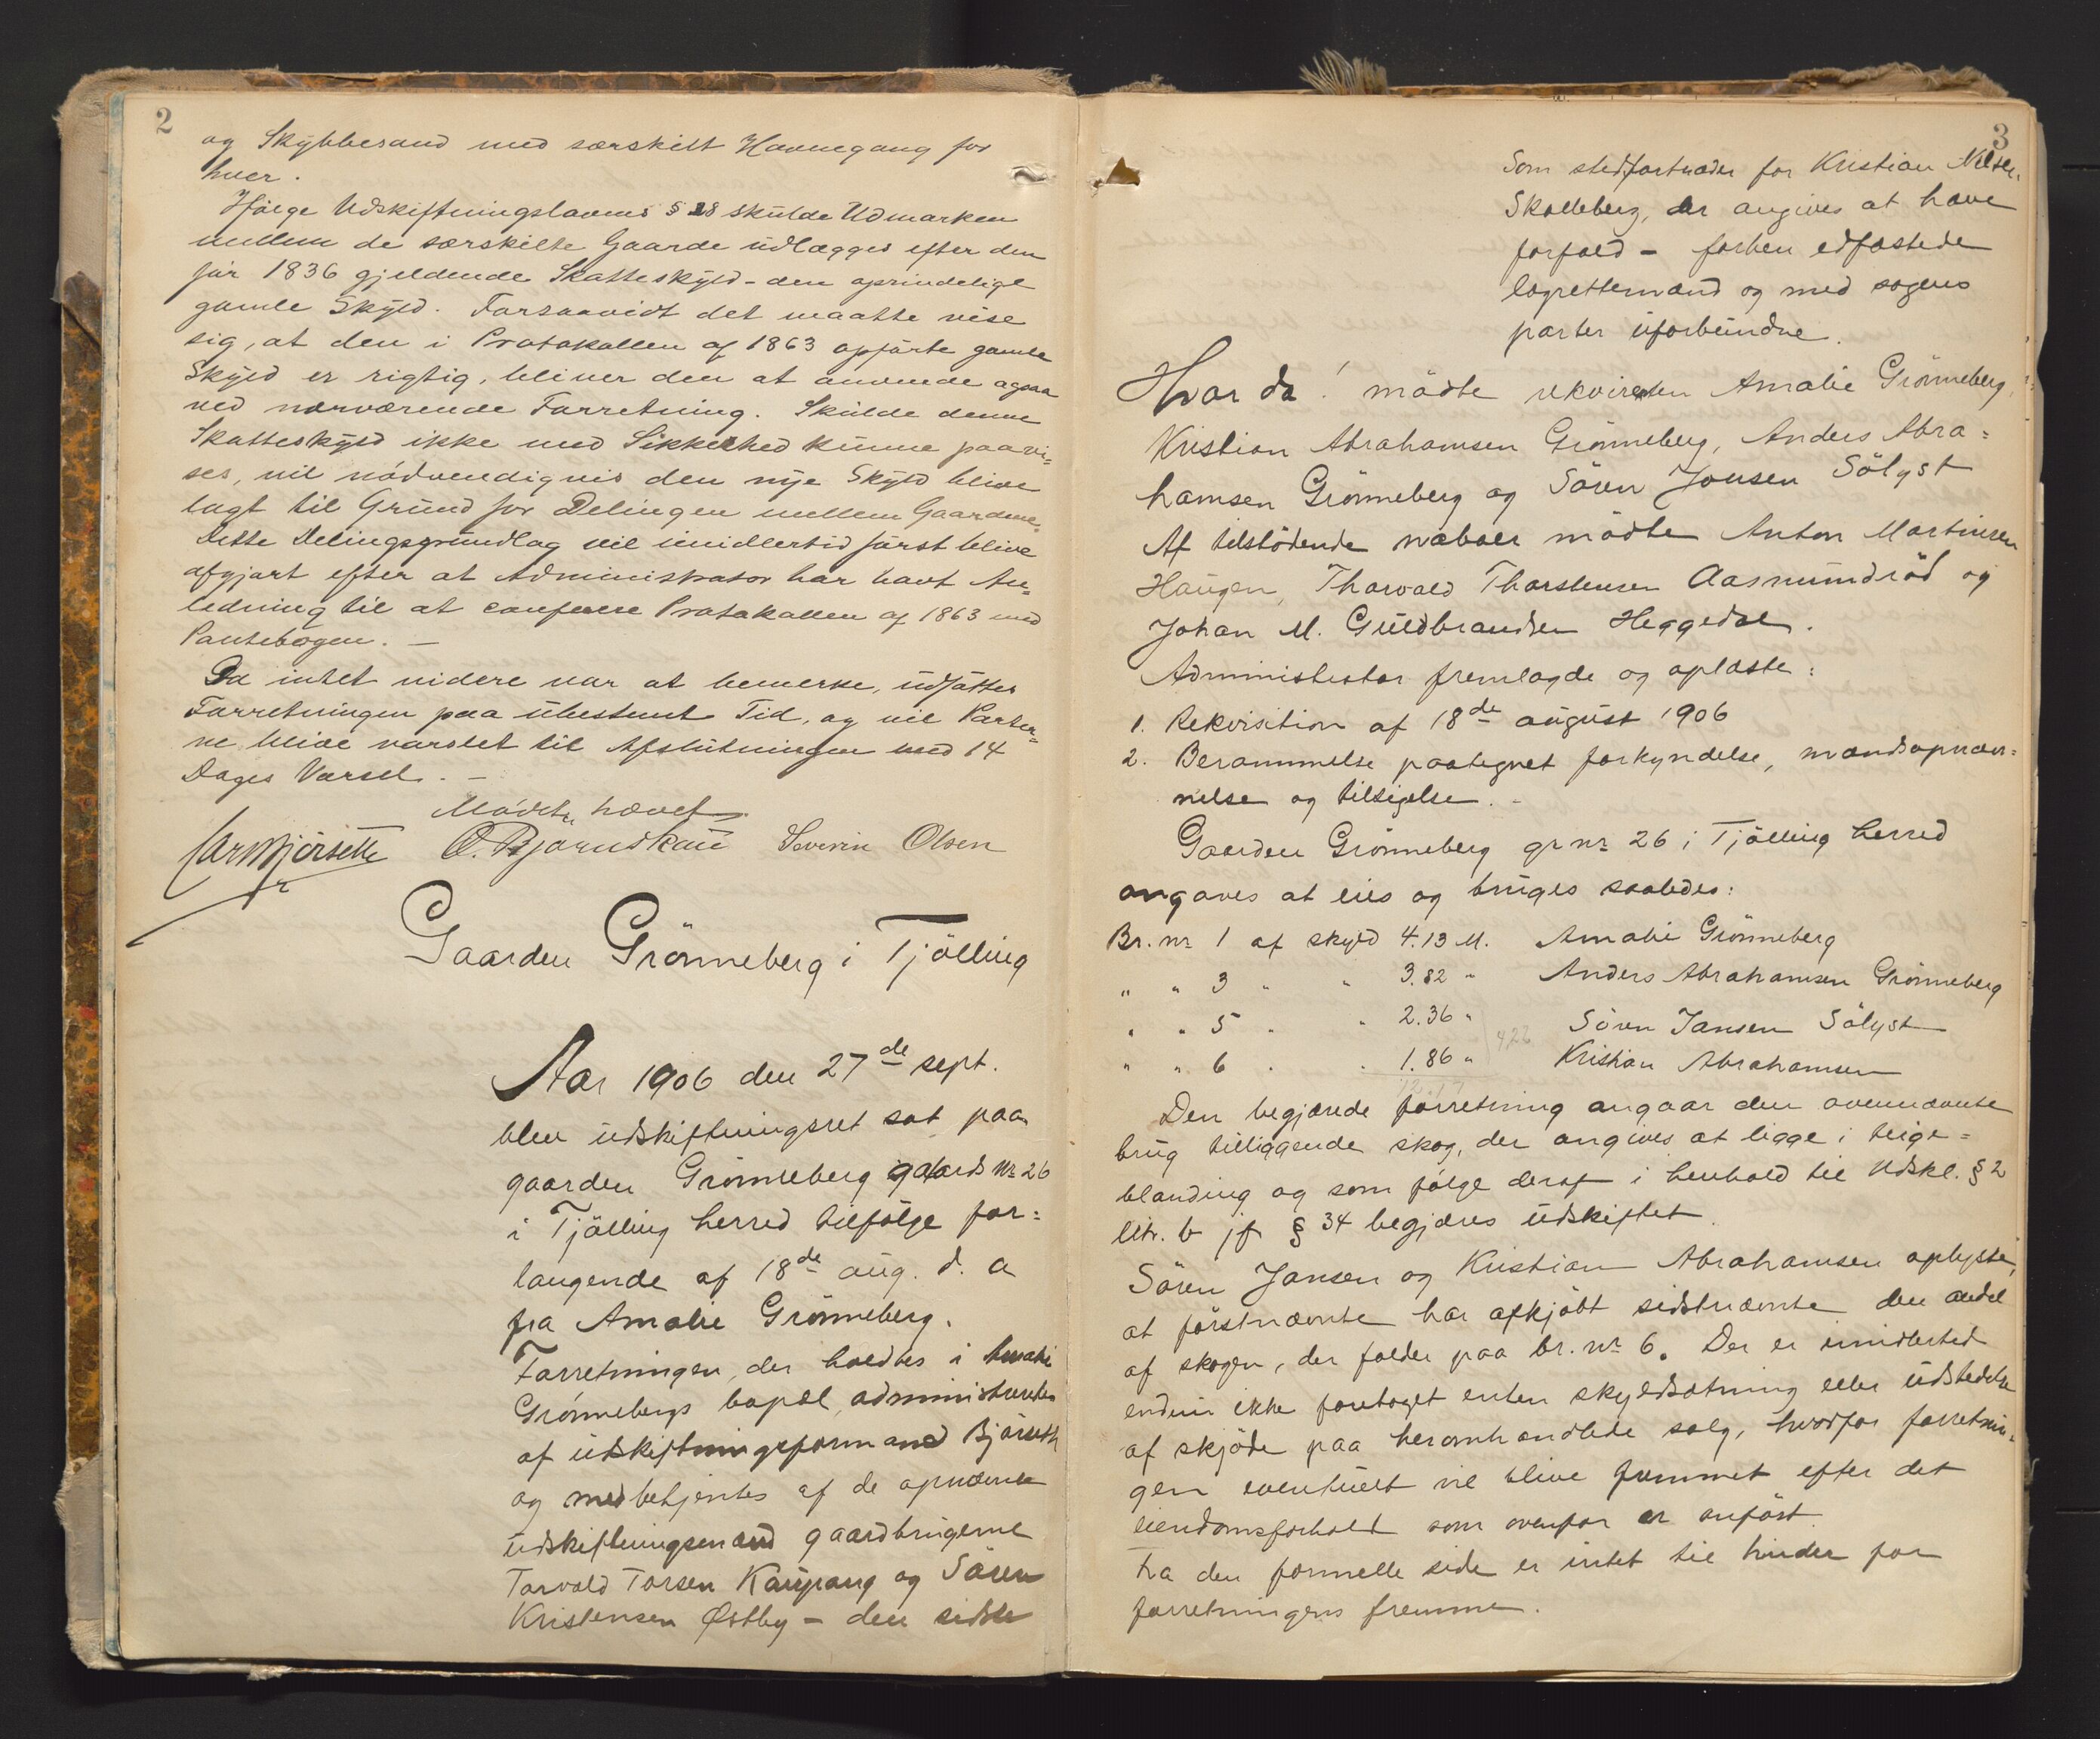 2
og Skybberand med særskilt Havnegang for
hver.
Ifølge Udskiftningslovens § 28 skulde Udmarken
mellem de særskilte Gaarde udlægges efter den
før 1836 gjeldende Skatteskyld - den oprindelige
gamle Skyld. Forsaavidt det maatte vise
sig, at den i Protokollen af 1863 opførte gamle
Skyld er rigtig, bliver den at anvende ogsaa
ved nærværende Forretning. Skulde denne
Skatteskyld ikke med Sikkerhed kunne paavi=
ses, vil nødvendigvis den nye Skyld blive
lagt til Grund for Delingen mellem Gaardene.
Dette Delingsgrundlag vil imidlertid først blive
afgjort efter at Administrator har havt An=
ledning til at conferere Protokollen af 1863 med
Pantebogen. —
Da intet videre var at bemerke, udsattes
Forretningen paa ubestemt Tid, og vil Parter=
ne blive varslet til Afslutningen med 14
Dages Varsel. —
Mødet hævet
O. Bjørnskau Severin Olsen
Gaarden Grönneberg i Tjölling
Aar 1906 den 27de sept.
blev udskiftningsret sat paa
gaarden Grönneberg gaards No 26
i Tjölling herred tilfölge for=
langende af 18de aug. d. a
fra Amalie Grönneberg.
Forretningen, der holdtes i Amalie
Grönnebergs bopæl, administreertes
af udskiftningsformand Bjørseth
og medbetjentes af de opnævnte
udskiftningsmænd gaardbrugerne
Torvald Torsen Kaupang og Sören
Kristensen Østby – den sidste
3
Som stedfortræder for Kristian Nilsen
Skalleberg, der angives at have
forfald – forhen edfæstede
lagrettemænd og med sagens
parter uforbundne.
Hvor da! mödte rekvirenten Amalie Grönneberg,
Kristian Abrahamsen Grönneberg, Anders Abra=
hamsen Grönneberg og Sören Jonsen Sölyst
Af tilstödende naboer mödte Anton Martinsen
Haugen, Thorvald Thorstensen Aasmundröd og
Johan M. Guldbrandsen Heggedal.
Administrator fremlagde og oplæste:
1. Rekvisition af 18de august 1906
2. Berammelse paategnet forkyndelse, mandsopnæv=
nelse og tilsigelse. –
Gaarden Grönneberg gr nr 26 i Tjölling herred
angaves at eies og bruges saaledes:
Br. nr 1 af skyld 4.13 M. Amalie Grönneberg
" " 3 " " 3.82 " Anders Abrahamsen Grönneberg
" " 5 " " 2.36 " Sören Jansen Sölyst
422
" " 6 " " 1.86 " Kristian Abrahamsen
12.17
Den begjærede forretning angaar den ovennævnte
brug tilliggende skog, der angives at ligge i teige=
blanding og som fölge deraf i henhold til Udskl. § 2
litr. b jf § 34 begjæres udskiftet.
Sören Jansen og Kristian Abrahamsen oplyste,
at förstnævnte har afkjöbt sidstnævnte den andel
af skogen, der falder paa br. nr 6. Der er imidlertid
endnu ikke foretaget enten skyldsætning eller udstedelse
af skjöde paa heromhandlede salg, hvorfor forretnin=
gen eventuelt vil blive fremmet efter det
eiendomsforhold som ovenfor er anfört.
Fra den formelle side er intet til hinder for
forretningens fremme.